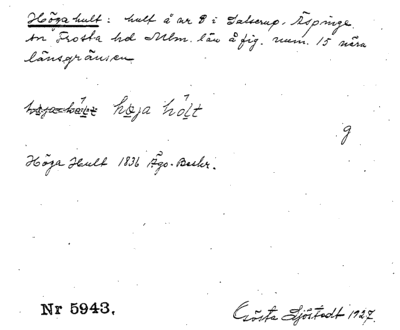 Höga hult: hult å nr 8 i Satserup, Äspinge
sn Frosta hd Mlm. län å fig. num. 15 nära
länsgränsen
hǫja hǫ́lt
g
Höga Hult 1836 Ägo-Beskr.
Nr 5943. Gösta Sjöstedt 1927.